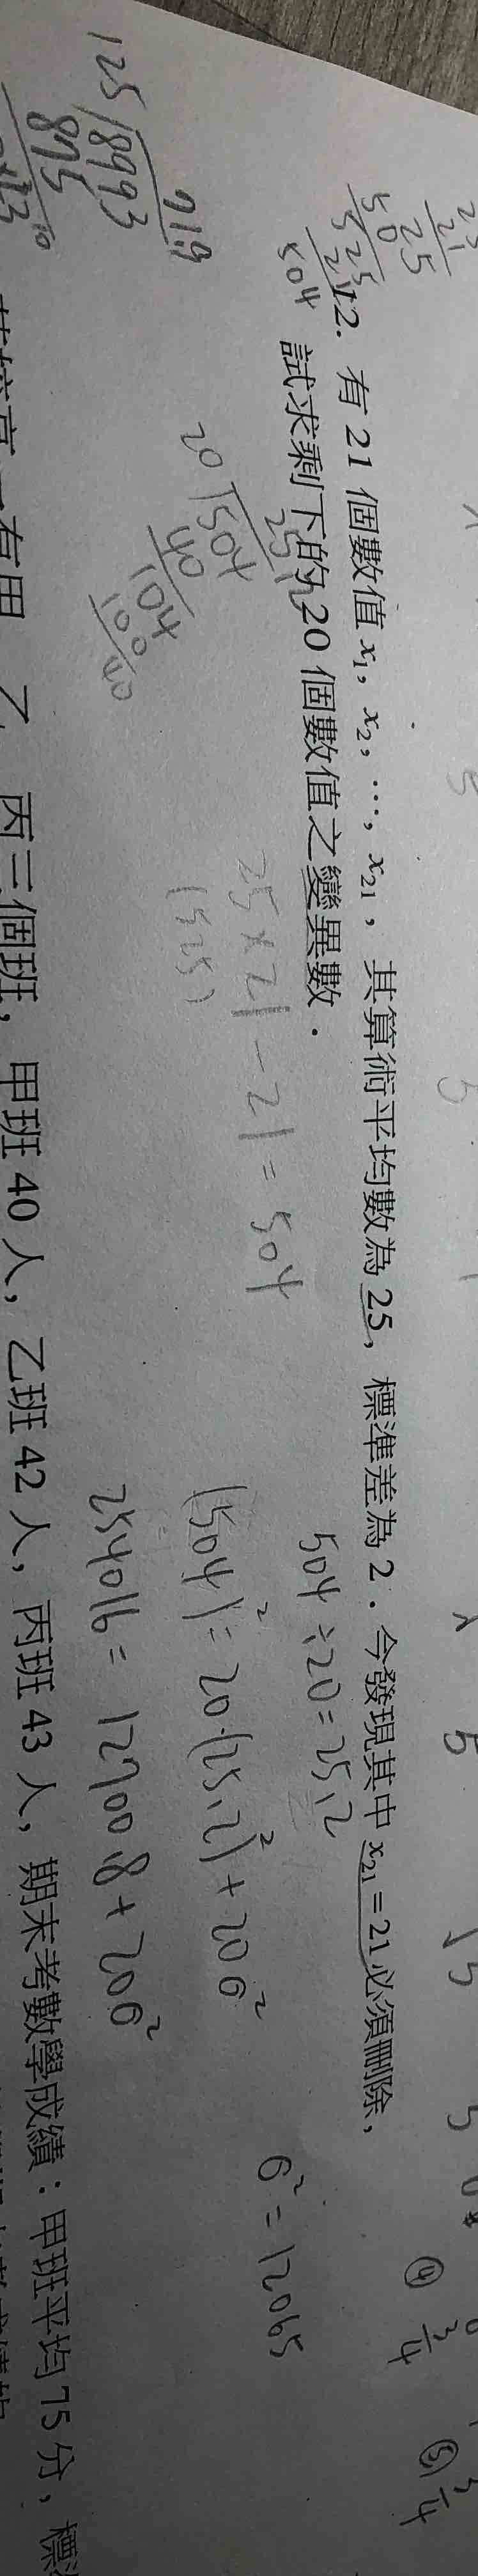 12. 有 21 個數值 x₁, x₂, ⋯, x₂₁, 其算術平均數為 25, 標準差為 2．今發現其中 x₂₁ = 21 必須刪除,
試求剩下的 20 個數值之變異數．
25
525
21
504
25 × 21 - 21 = 504
(525)
504 ÷ 20 = 25.2
(504)² = 20·(25.2)² + 20σ²
254016 = 12700.8 + 20σ²
σ² = 12065
20
504
40
104
100
40
71.9
125
8993
875
④ 3/4
⑤ 3/4
乙 丙三個班, 甲班 40 人, 乙班 42 人, 丙班 43 人, 期末考數學成績：甲班平均 75 分, 標